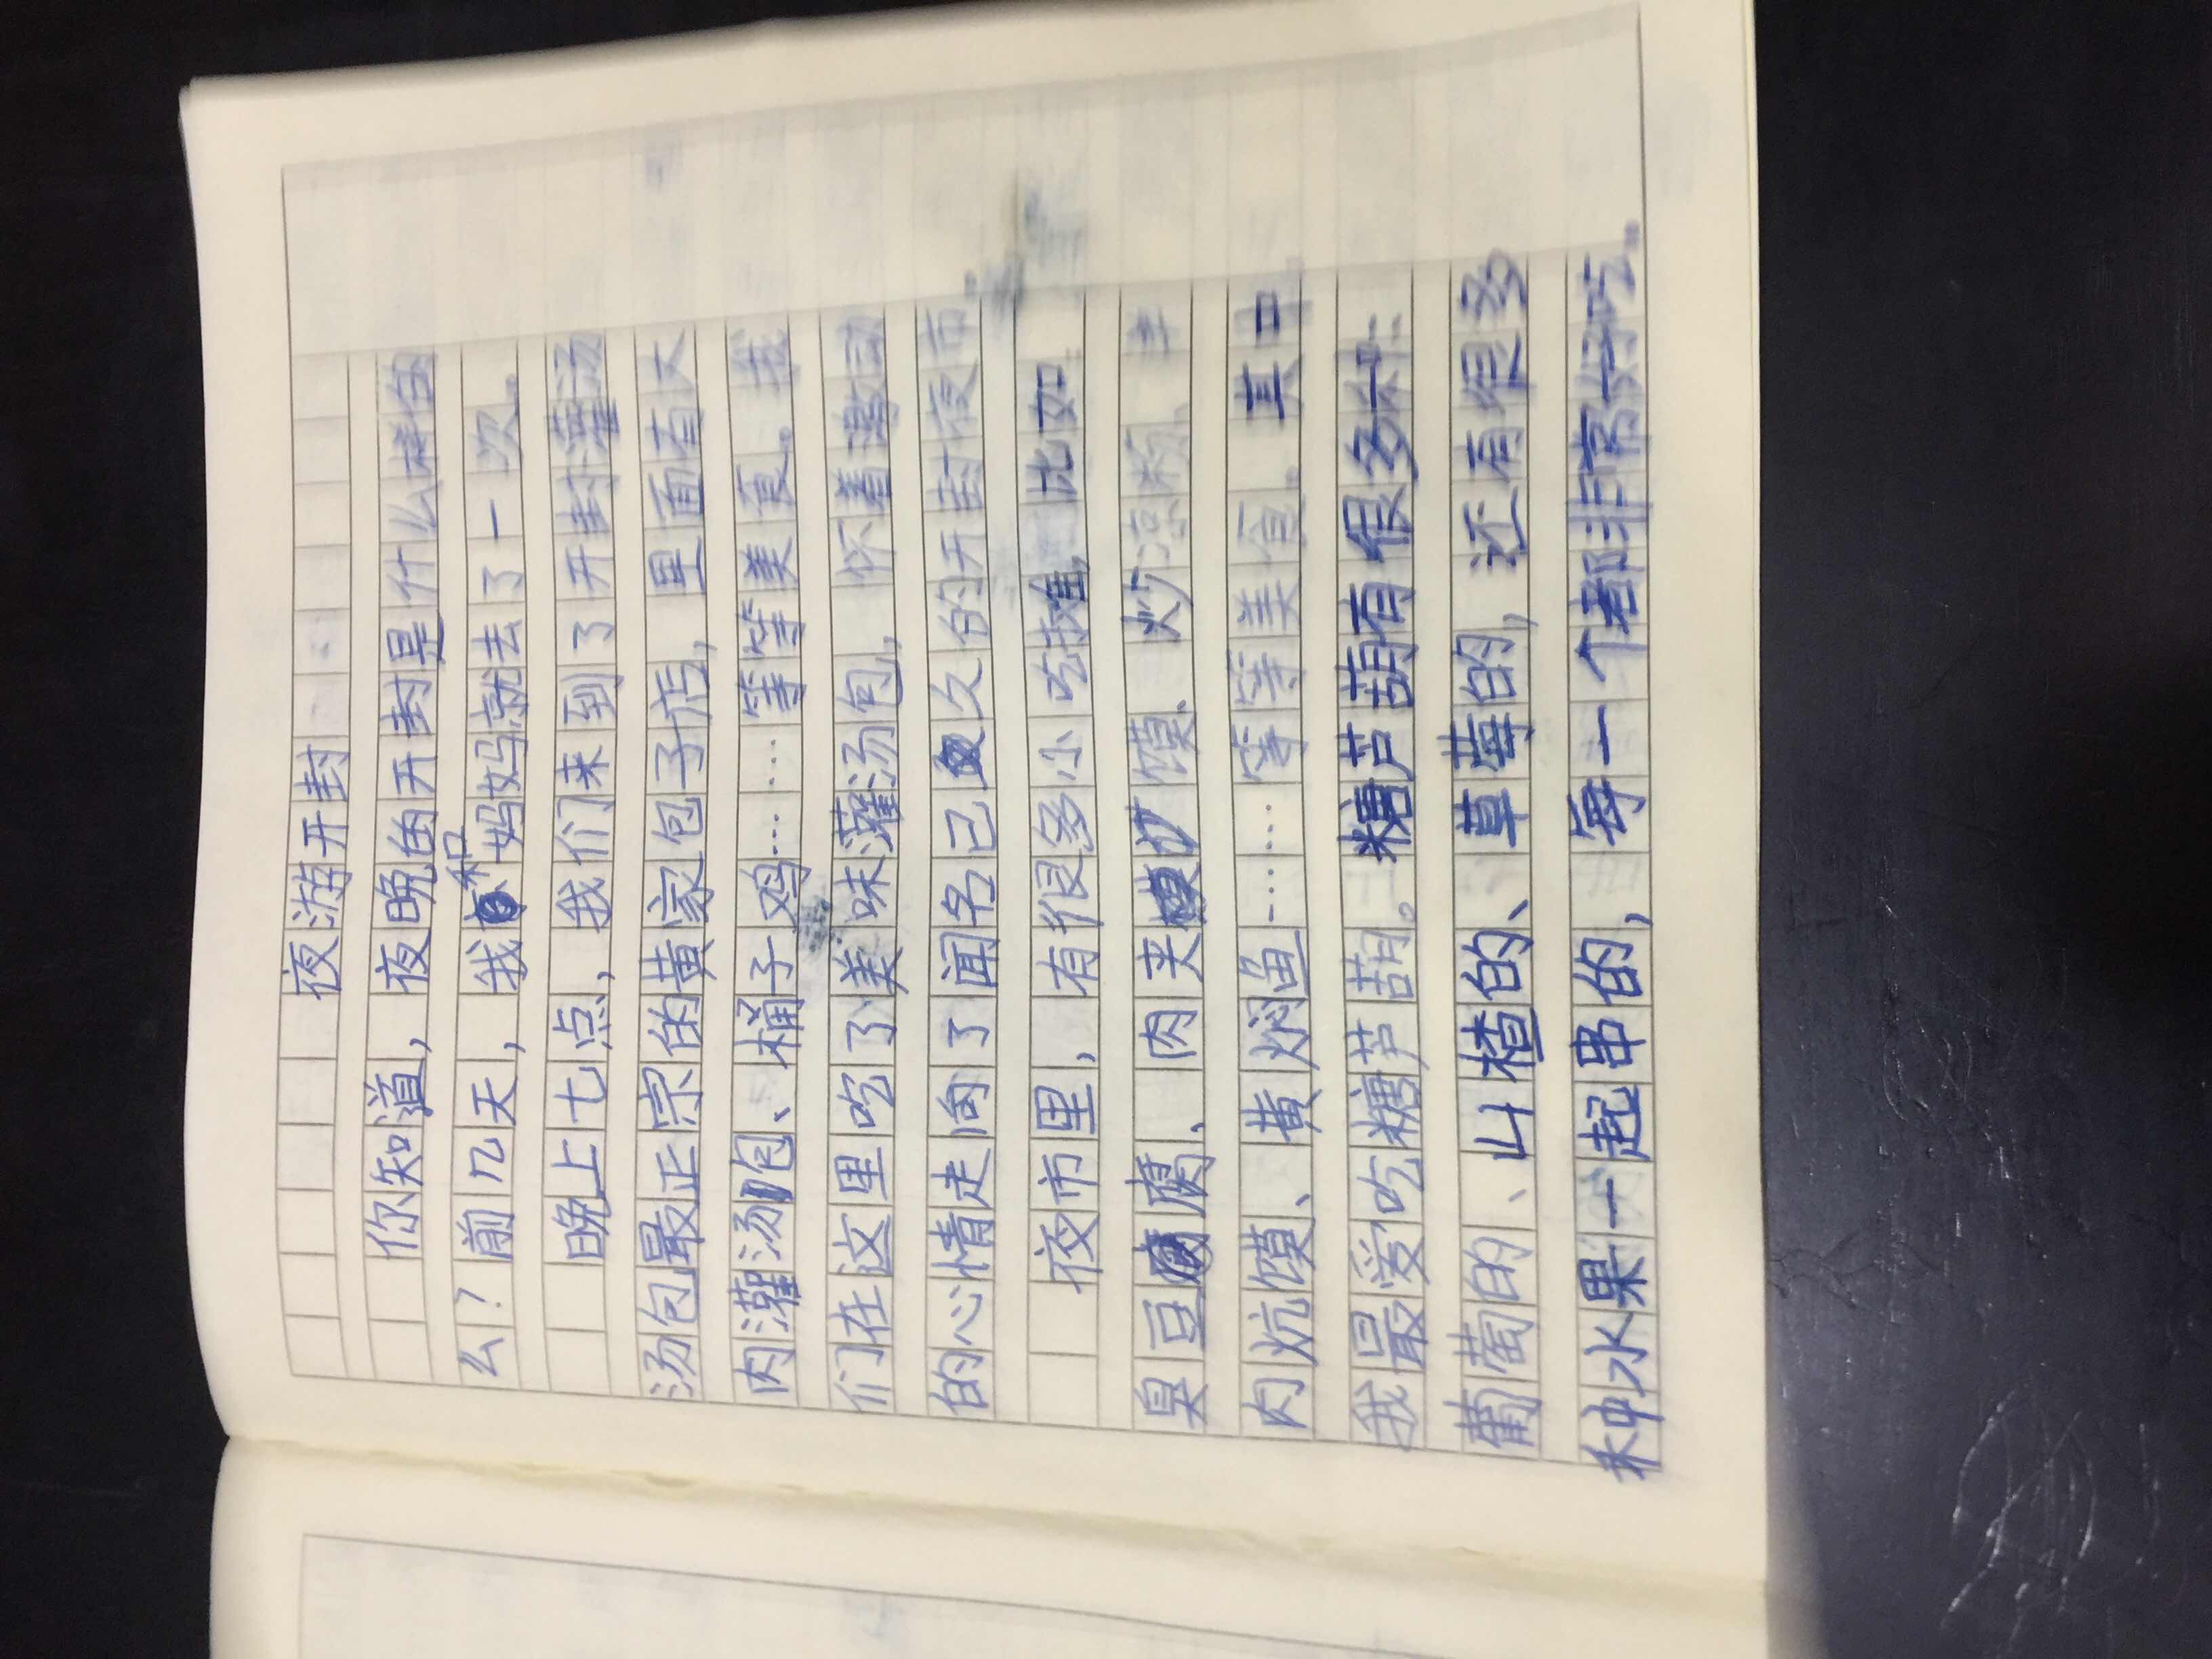 夜游开封
你知道，夜晚的开封是什么样的
么？前几天，我和妈妈就去了一次。
晚上七点，我们来到了开封灌汤
汤包最正宗的黄家包子店，里面有大
肉灌汤包、桶子鸡……等等美食。我
们在这里吃了美味灌汤包，怀着激动
的心情走向了闻名已久的开封夜市。
夜市里，有很多小吃摊，比如
臭豆腐、肉夹馍、炒凉粉、羊
肉炕馍、黄焖鱼……等等美食。其中
我最爱吃糖芦葫。糖芦葫有很多种：
葡萄的、山楂的、草莓的，还有很多
种水果一起串的，每一个都非常好吃。